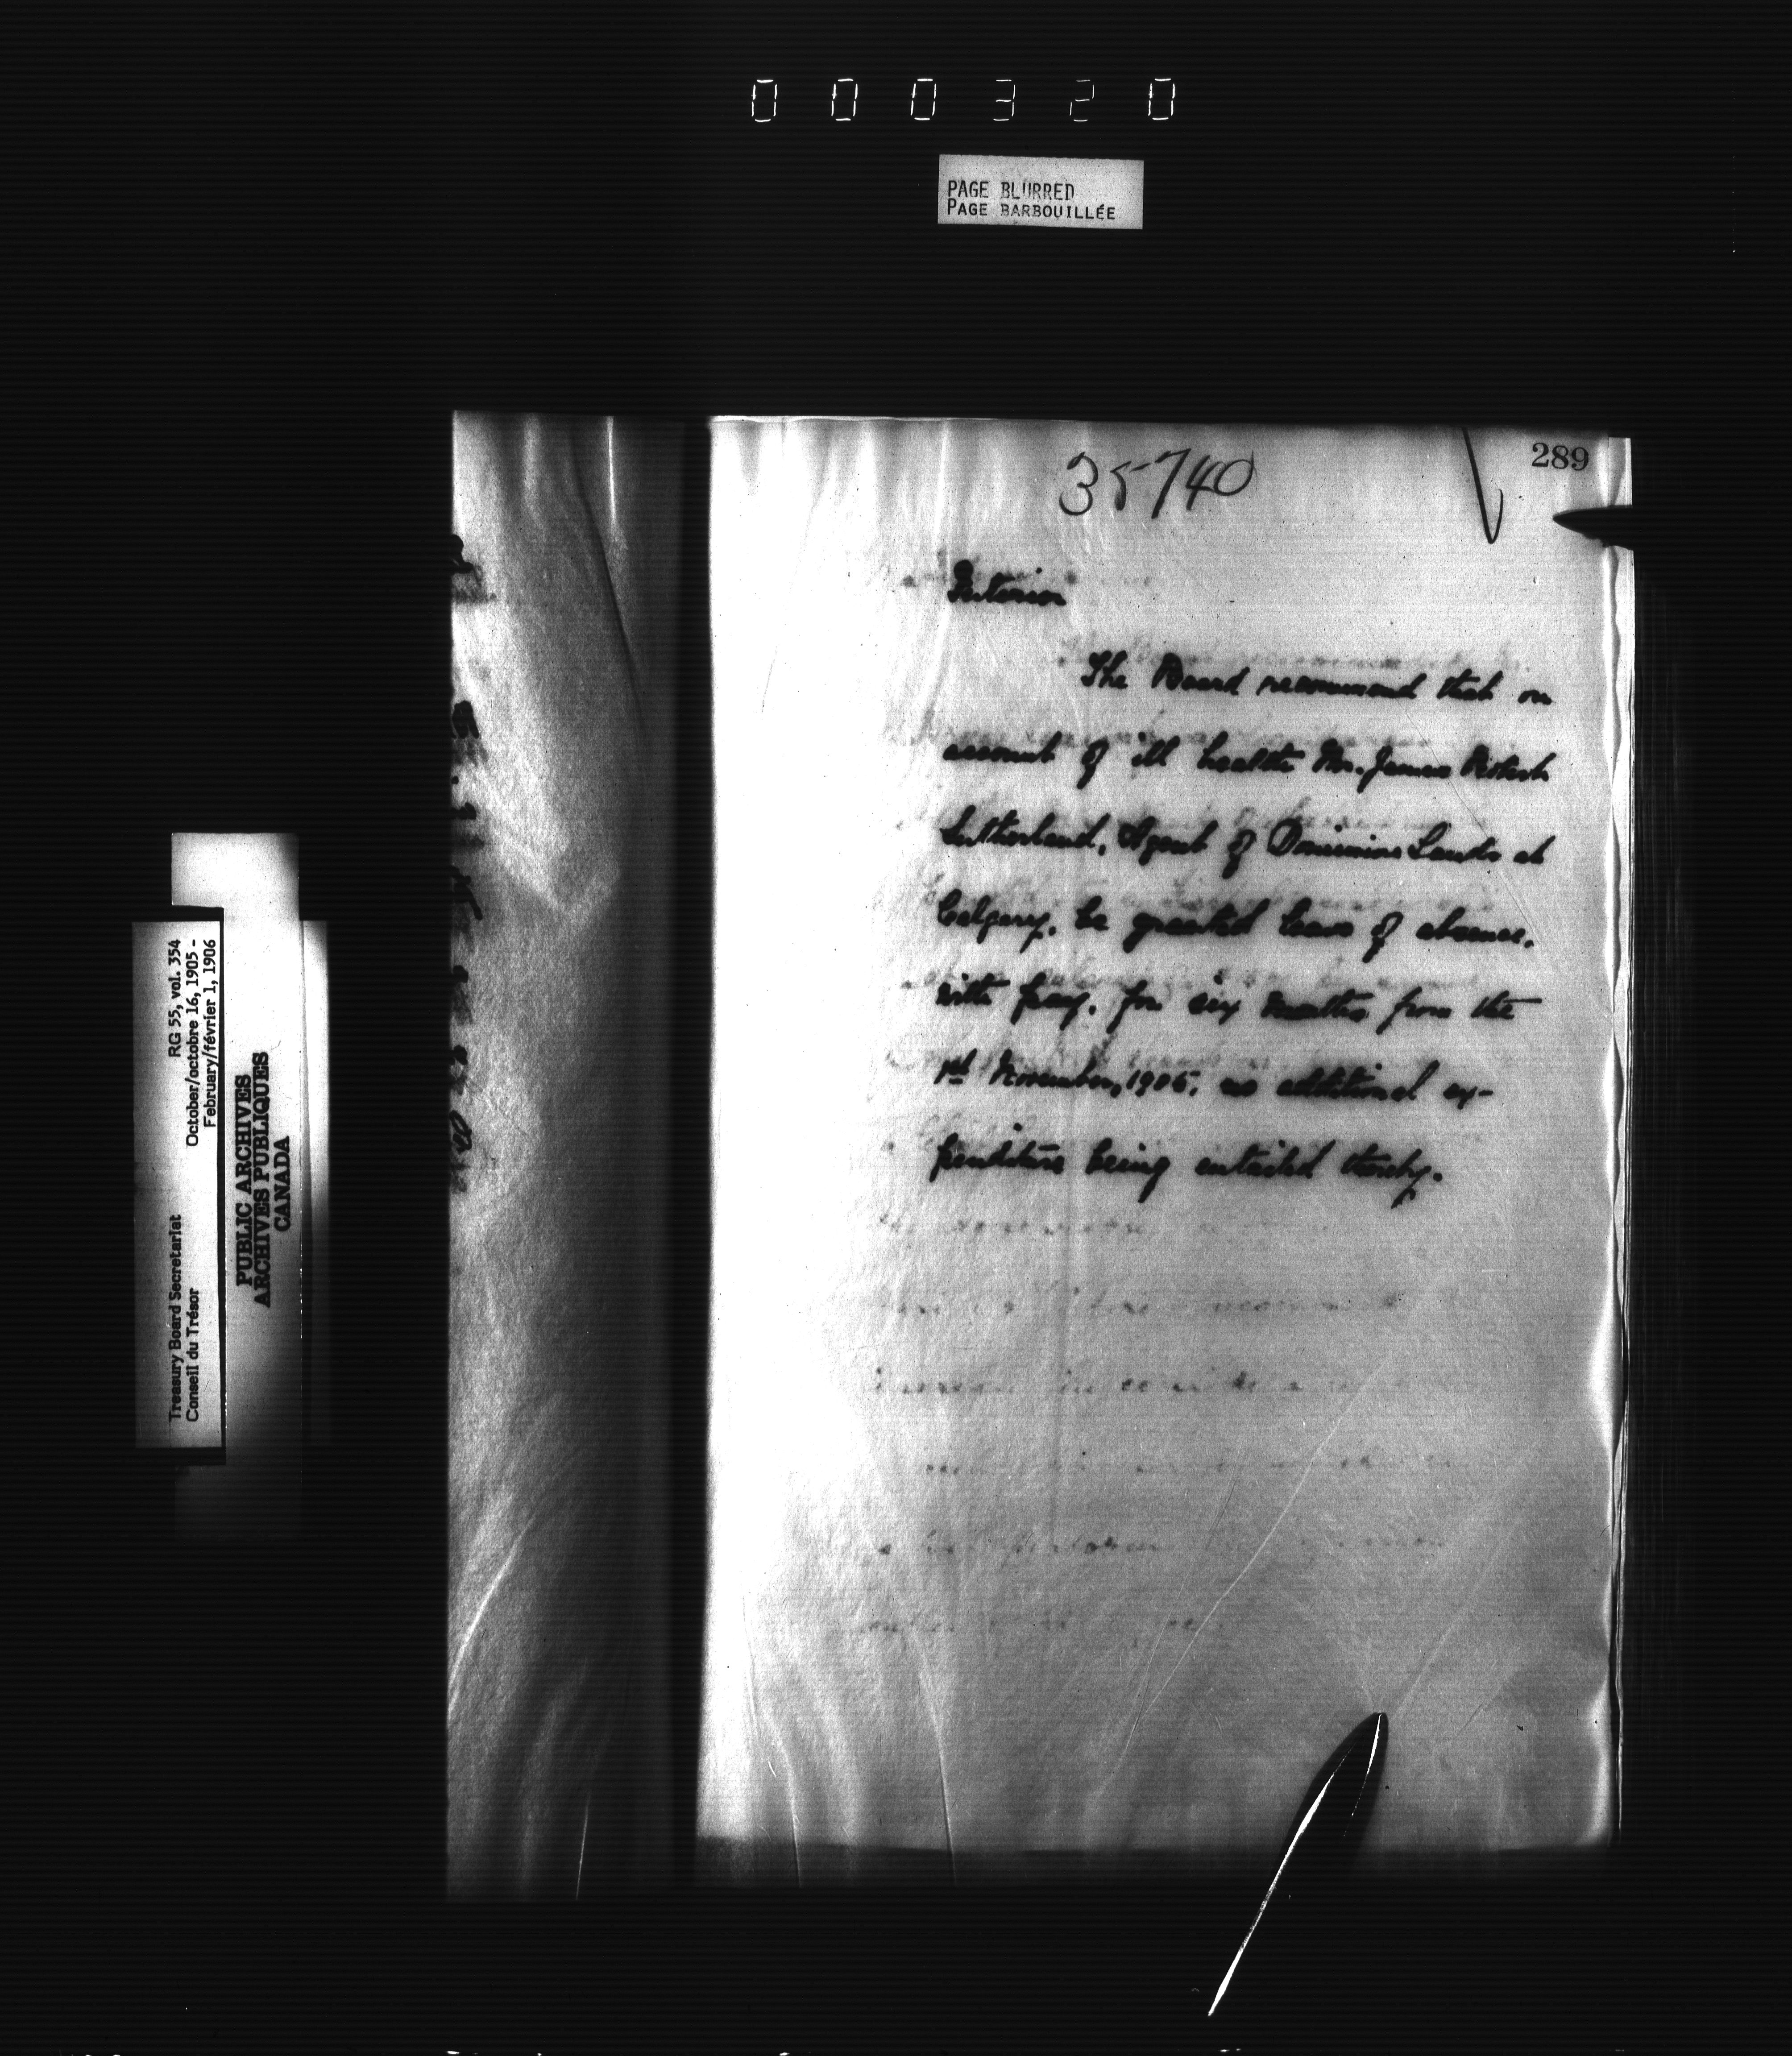 000320
PAGE BLURRED
PAGE BARBOUILLÉE
289
35740
Interior
The Board recommend that on
account of ill health Mr. James
Sutherland, Agent of Dominion Lands at
Calgary, be granted leave of absence,
with pay, for six months from the
1st November, 1905, no additional ex-
penditure being entailed thereby.
Treasury Board Secretariat
Conseil du Trésor
RG 55, vol. 354
October/octobre 16, 1905 -
February/février 1, 1906
PUBLIC ARCHIVES
ARCHIVES PUBLIQUES
CANADA